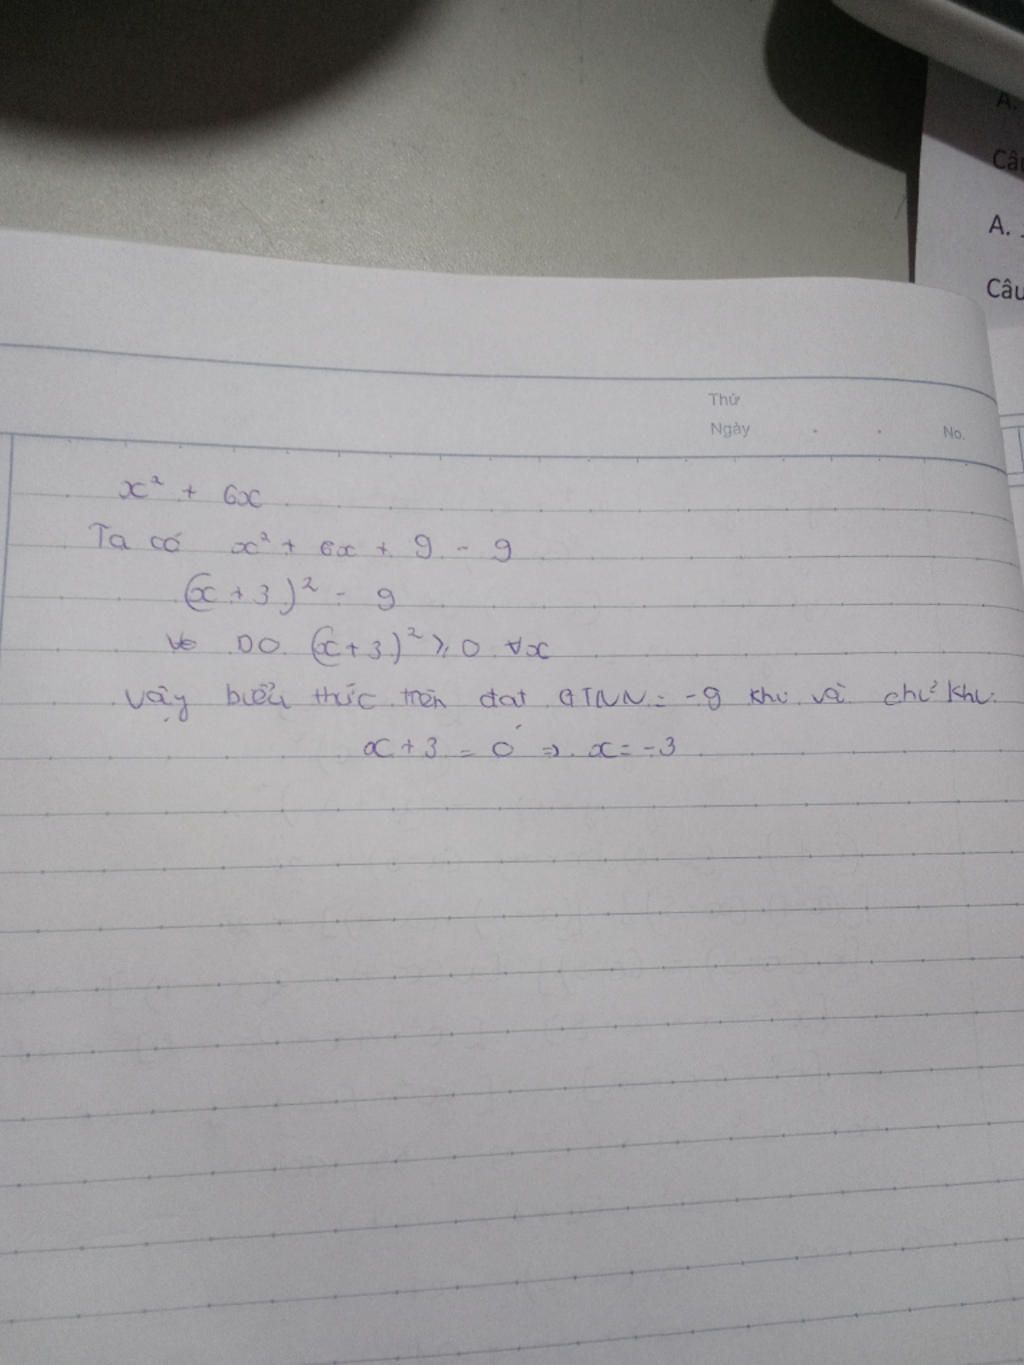 A.
Câu
A.
Câu
Thứ
Ngày . . No.
x² + 6x
Ta có x² + 6x + 9 - 9
(x + 3)² - 9
DO (x+3)² ≥ 0 ∀x
vậy biểu thức trên đạt GTNN = -9 khi và chỉ khi
x + 3 = 0 => x = -3